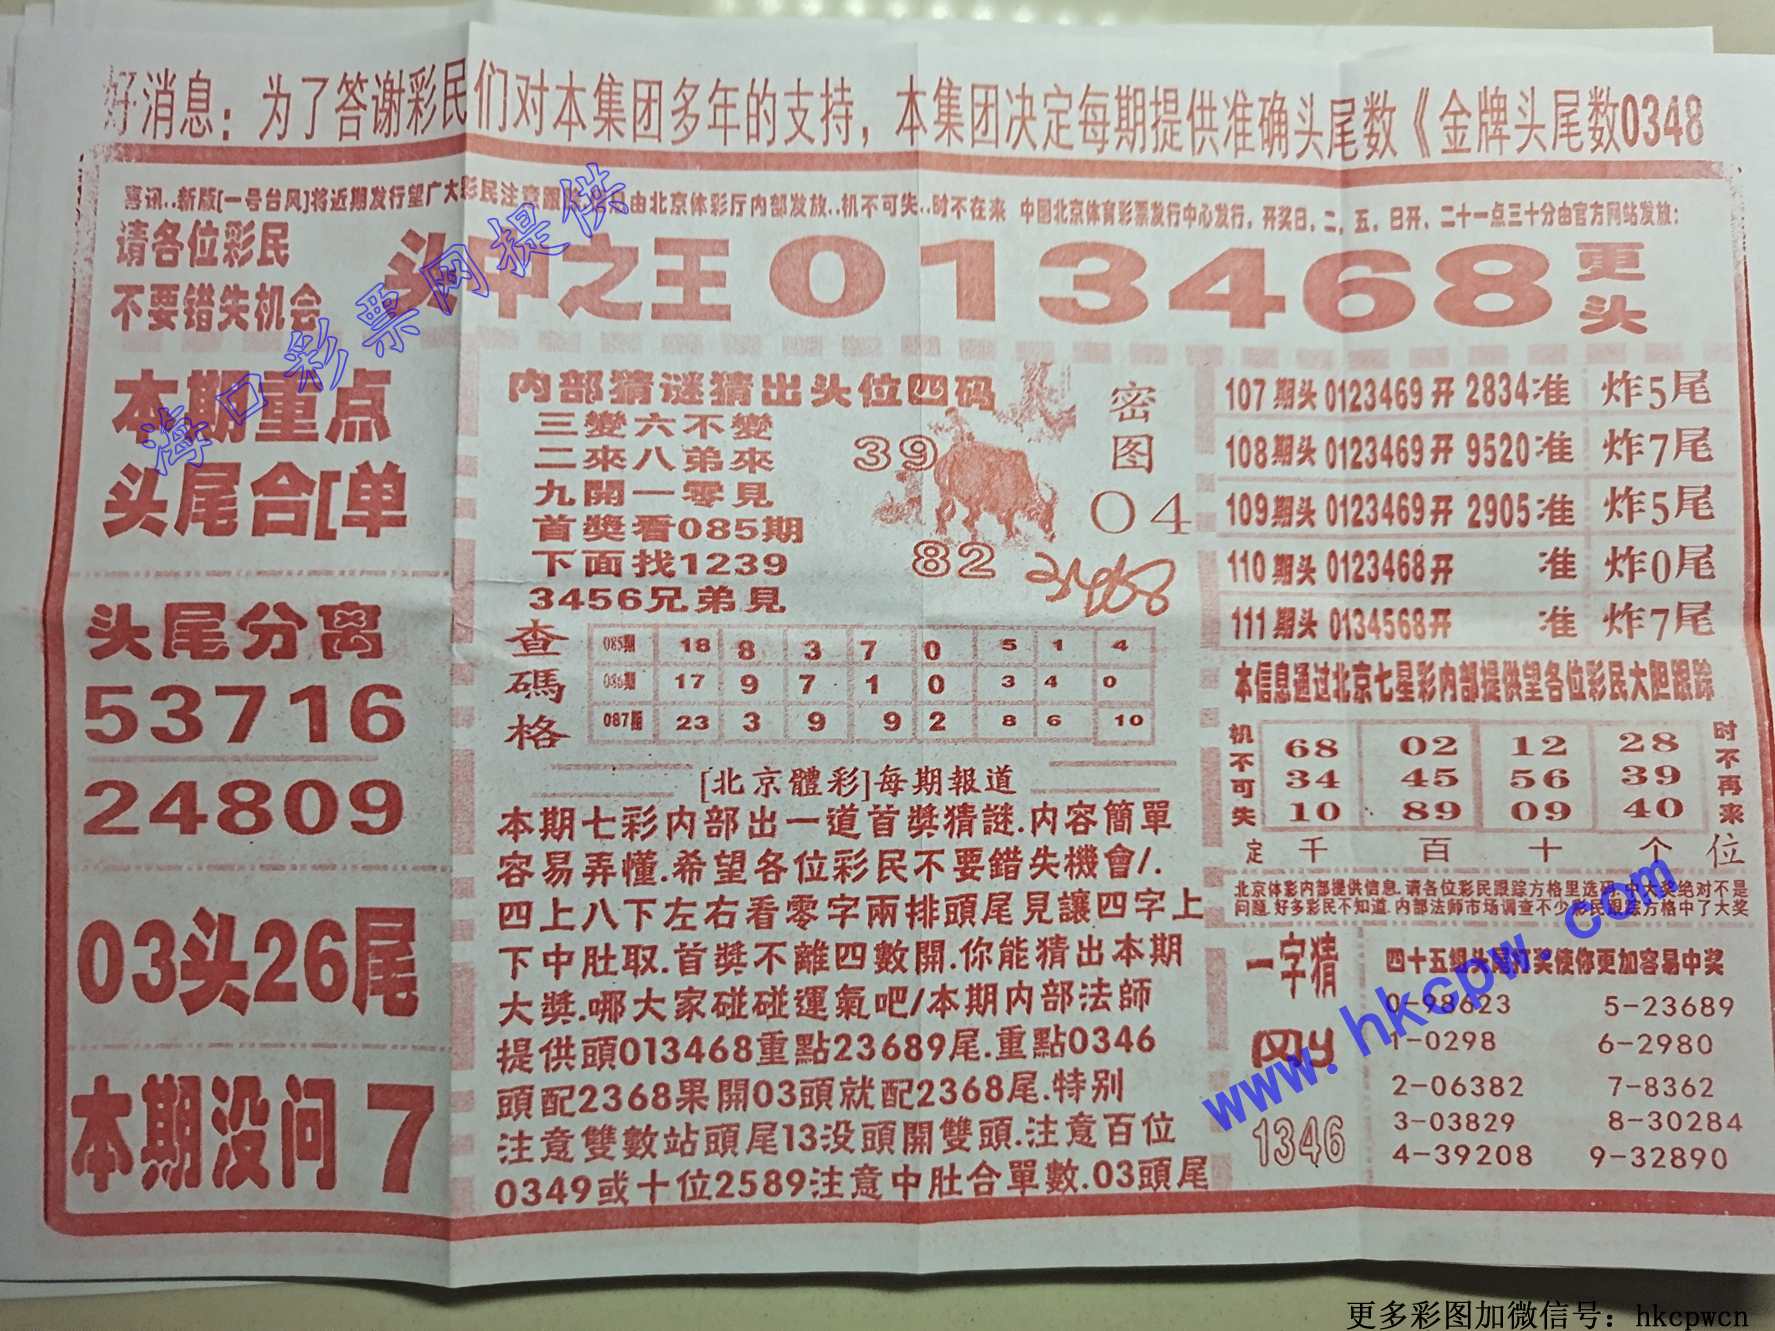 好消息：为了答谢彩民们对本集团多年的支持，本集团决定每期提供准确头尾数《金牌头尾数0348
喜讯..新版[一号台风]将近期发行望广大彩民注意跟踪 由北京体彩厅内部发放..机不可失..时不在来 中国北京体育彩票发行中心发行，开奖日，二，五，日开，二十一点三十分由官方网站发放：
请各位彩民
不要错失机会
头中之王 013468 更头
本期重点
头尾合[单
头尾分离
53716
24809
03头26尾
本期没问7
内部猜谜猜出头位四码
三變六不變
二來八弟來
九開一零見
首獎看085期
下面找1239
3456兄弟見
39
82
密图
04
3468
查碼格
085期 18 8 3 7 0 5 1 4
086期 17 9 7 1 0 3 4 0
087期 23 3 9 9 2 8 6 10
[北京體彩]每期報道
本期七彩内部出一道首獎猜謎.内容簡單
容易弄懂.希望各位彩民不要錯失機會/.
四上八下左右看零字兩排頭尾見讓四字上
下中肚取.首獎不離四數開.你能猜出本期
大獎.哪大家碰碰運氣吧/本期内部法師
提供頭013468重點23689尾.重點0346
頭配2368果開03頭就配2368尾.特别
注意雙數站頭尾13没頭開雙頭.注意百位
0349或十位2589注意中肚合單數.03頭尾
107期头0123469开2834准 炸5尾
108期头0123469开9520准 炸7尾
109期头0123469开2905准 炸5尾
110期头0123468开 准 炸0尾
111期头0134568开 准 炸7尾
本信息通过北京七星彩内部提供望各位彩民大胆跟踪
机不可失
68 02 12 28
34 45 56 39
10 89 09 40
时不再来
定 千 百 十 个 位
北京体彩内部提供信息.请各位彩民跟踪方格里选码.中大奖绝对不是
问题.好多彩民不知道.内部法师市场调查不少彩民跟踪方格中了大奖
一字猜
1346
四十五组头尾打奖使你更加容易中奖
0-98623 5-23689
1-0298 6-2980
2-06382 7-8362
3-03829 8-30284
4-39208 9-32890
海口彩票网提供
www.hkcpw.com
更多彩图加微信号：hkcpwcn